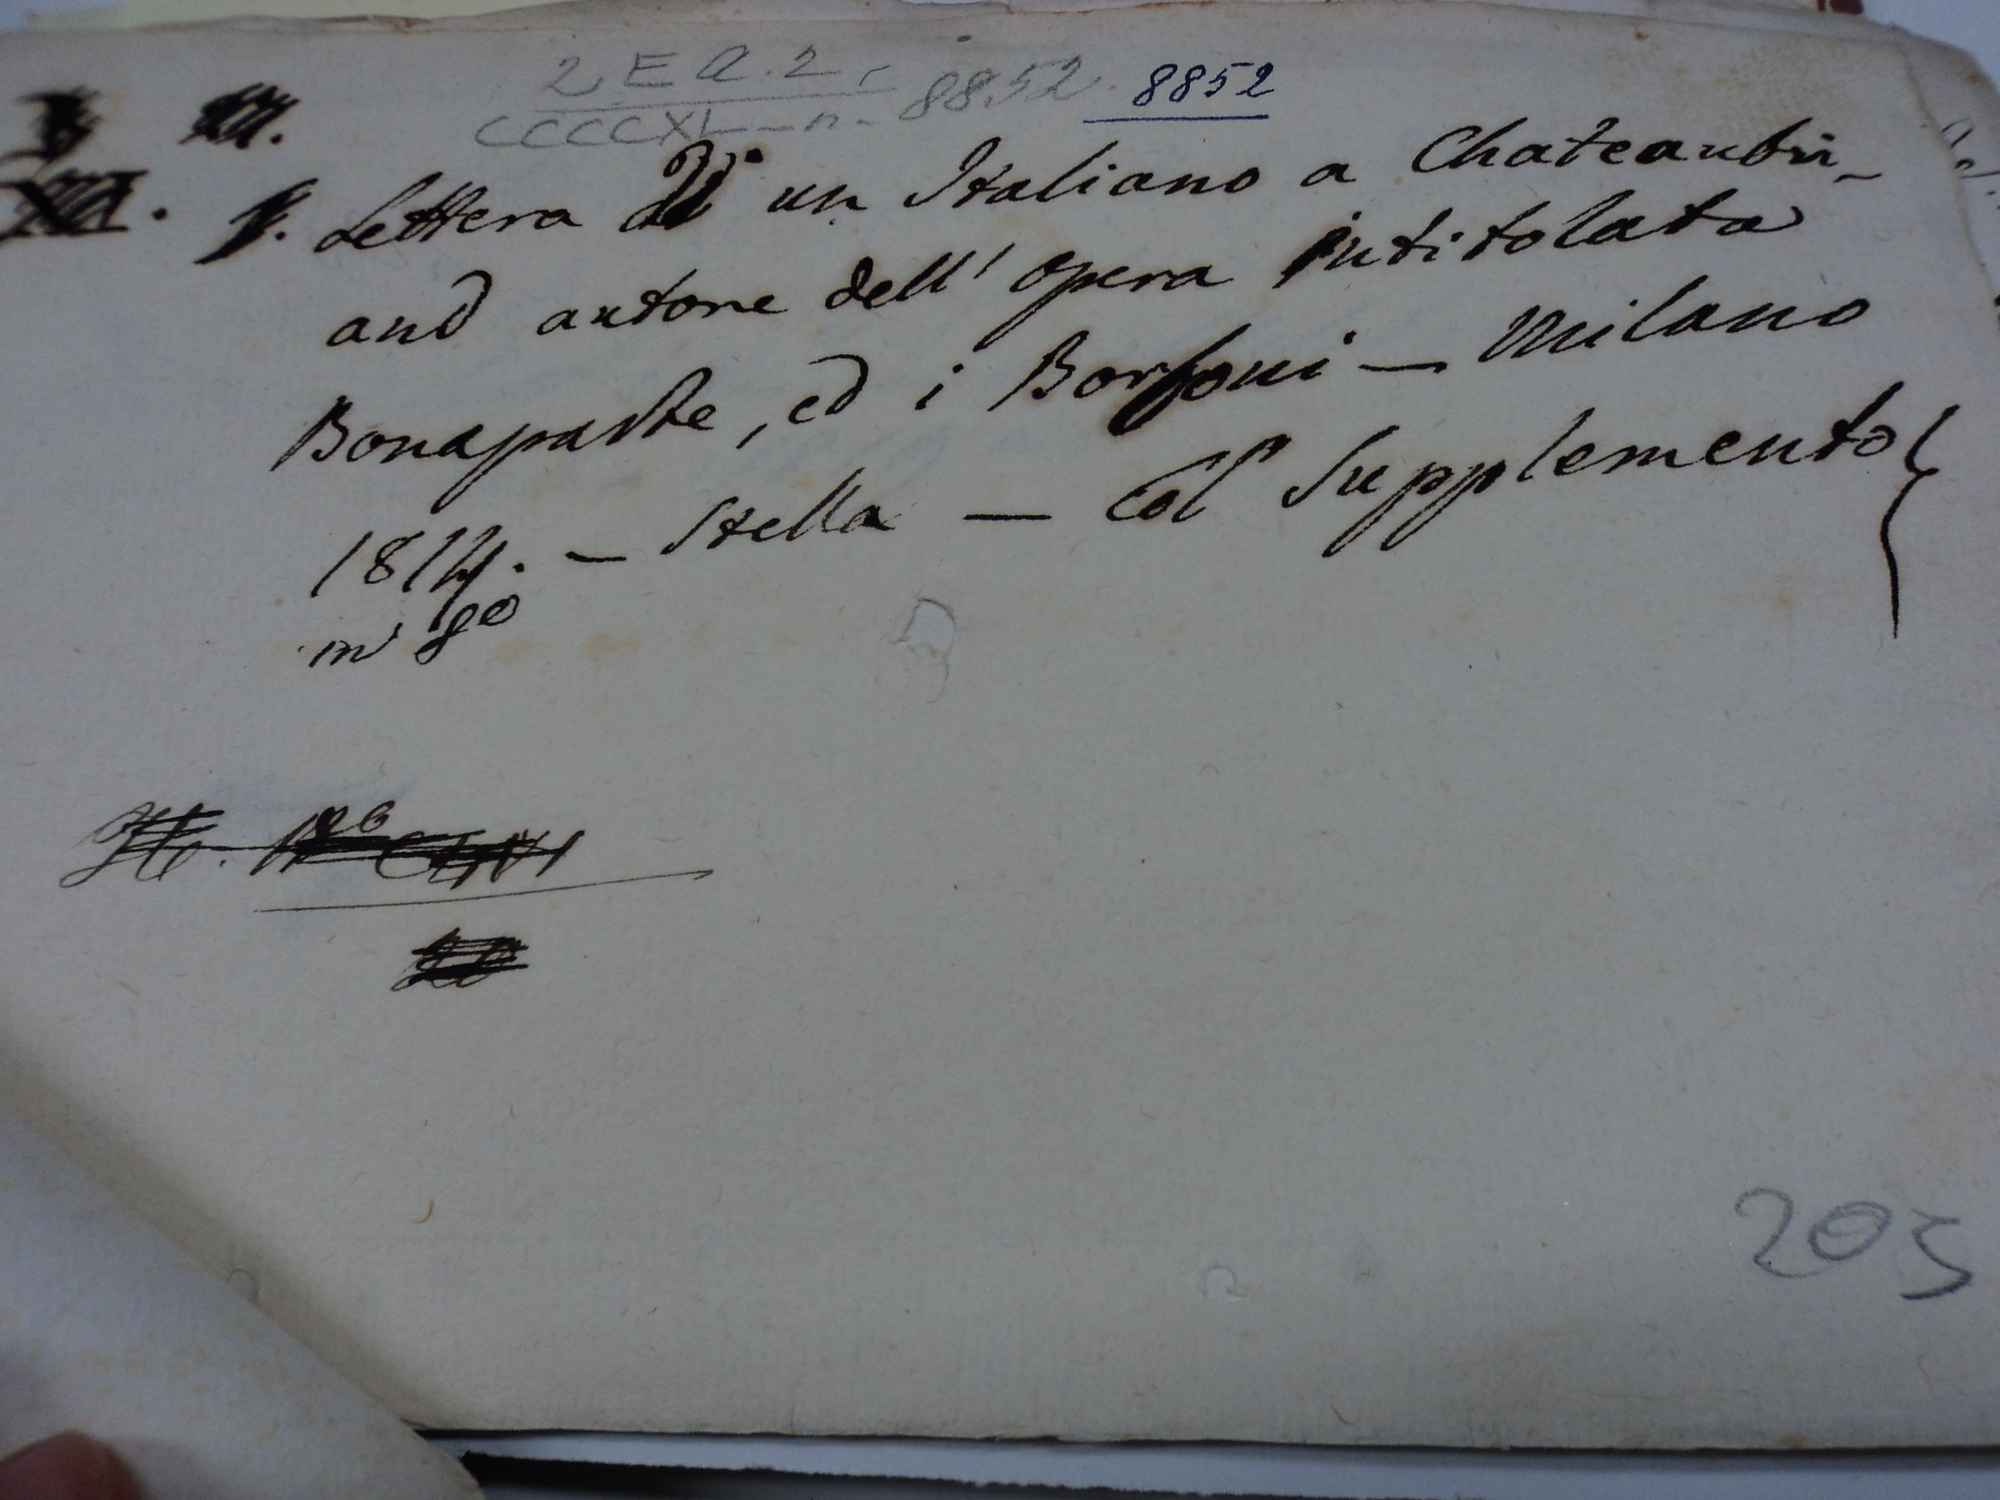 2 E a. 2
CCCCXL - n. 8852. 8852
XII.
Lettera di un Italiano a Chateaubri-
and autore dell' opera intitolata
Bonaparte, ed i Borboni — Milano
1814. — Stella — Col Supplemento
in 8o
205